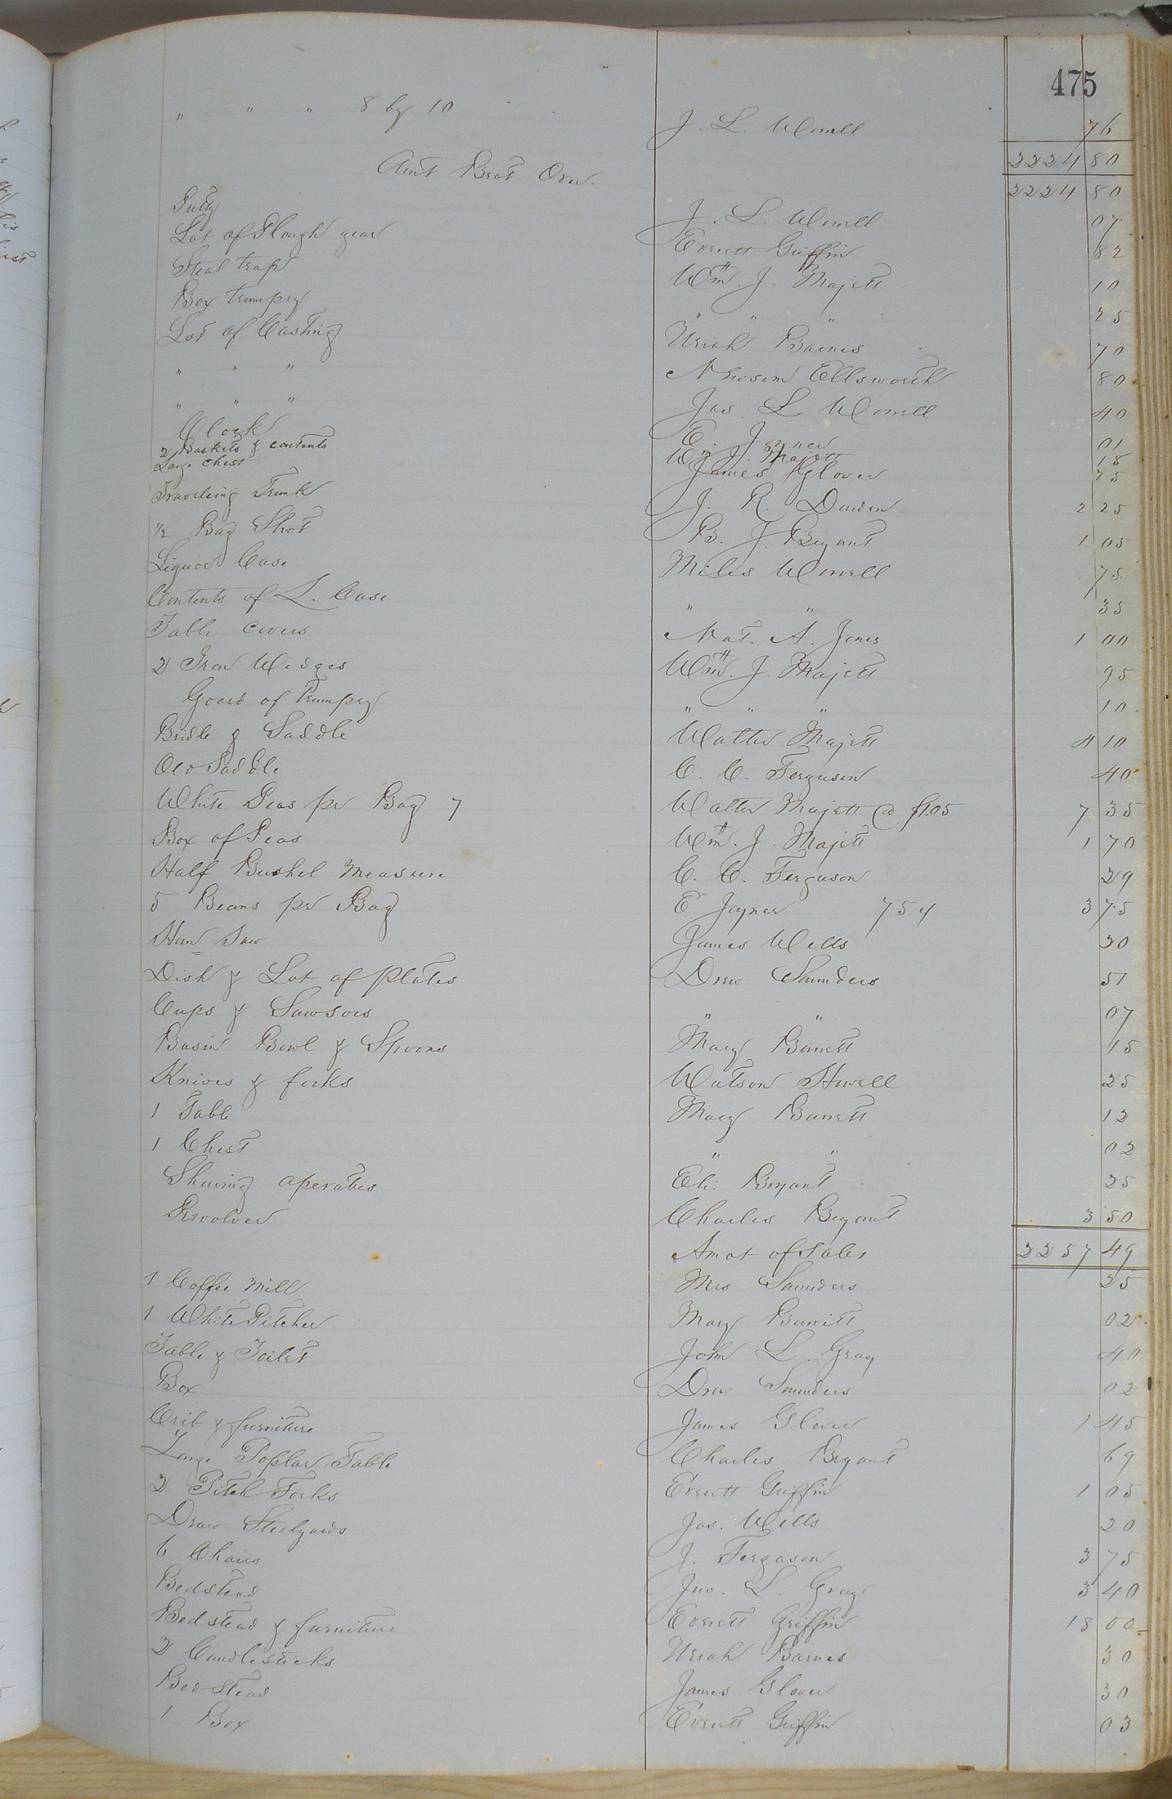 475
" " " 8 by 10 J. L. Worrell 76
2224 80
Amt Brot Over. 2224 80
Putty J. L. Worrell 07
Lot of Plough gear Everett Griffin 82
Steal trap Wm. J. Majett 10
Box trumpry " " " 25
Lot of Casting Uriah Barnes 70
" " " Newsom Ellsworth 80
" " " Jas. L Worrell 40
Clock E. Joyner 01
2 Baskets & contents Wm J. Majett 15
Large Chest James Glover 75
Traveling Trunk J. R. Darden 2 25
1/2 Bag Shot B. J. Bryant 1 05
Liquor Case Miles Worrell 75
Contents of L. Case " " 35
Table covers Nat. A. Jones 1 00
2 Iron Wedges Wm. J. Majett 95
Goard of Trumpry " " " 10
Bridle & Saddle Walter Majett 4 10
Old Saddle C. C. Ferguson 40
White Peas pr Bag 7 Walter Majett @ $1.05 7 35
Box of Peas Wm. J. Majett 1 70
Half Bushel Measure C. C. Ferguson 29
5 Beans pr Bag E Joyner 75 ¢ 3 75
Han Saw James Wells 30
Dish & Lot of plates Drew Saunders 51
Cups & Sawsors " " 07
Basin Bowl & Spoons Mary Barrett 15
Knives & forks Watson Howell 25
1 Table Mary Barrett 12
1 Chest " " 02
Shaving aperatus Eli: Bryant 25
Revolver Charles Bryant 3 50
Amot of Sales 2257 49
1 Coffee Mill Mrs Saunders 25
1 White Pitcher Mary Barrett 02
Table & Toilet John L. Gray 40
Box Drew Saunders 02
Crib & furniture James Glover 1 45
Large Poplar Table Charles Bryant 69
2 Pitch Forks Everett Griffin 1 05
Draw Steelyards Jas. Wells 20
6 Chairs J. Fergason 3 75
Bedstead Jno. L. Gray 3 40
Bedstead & furniture Everett Griffin 18 00
2 Candlesticks Uriah Barnes 30
Bedstead James Glover 30
1 Box Everett Griffin 03